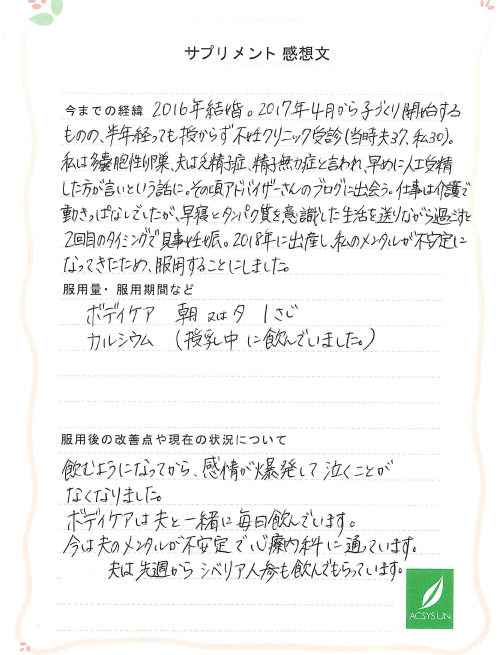 サプリメント 感想文
今までの経緯 2016年結婚。2017年4月から子づくり開始する
ものの、半年経っても授からず不妊クリニック受診(当時夫37、私30)。
私は多嚢胞性卵巣、夫は乏精子症、精子無力症と言われ、早めに人工受精
した方が言いという話に。その頃アドバイザーさんのブログに出会う。仕事は介護で
動きっぱなしでしたが、早寝とタンパク質を意識した生活を送りながら過ごすと
2回目のタイミングで見事妊娠。2018年に出産し、私のメンタルが不安定に
なってきたため、服用することにしました。
服用量・服用期間など
ボディケア 朝 又は 夕 1さじ
カルシウム (授乳中に飲んでいました。)
服用後の改善点や現在の状況について
飲むようになってから、感情が爆発して泣くことが
なくなりました。
ボディケアは夫と一緒に毎日飲んでいます。
今は夫のメンタルが不安定で心療内科に通っています。
夫は先週からシベリア人参も飲んでもらっています。
ACSYSUN